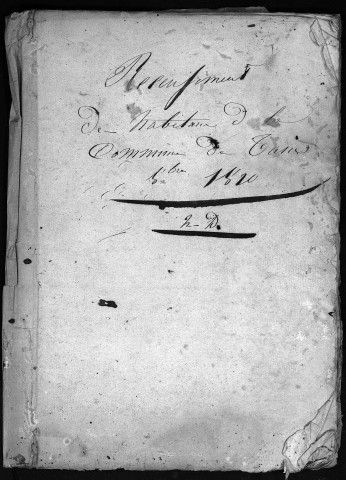 Recensement
Des habitans de la
Commune de
8.bre 1820